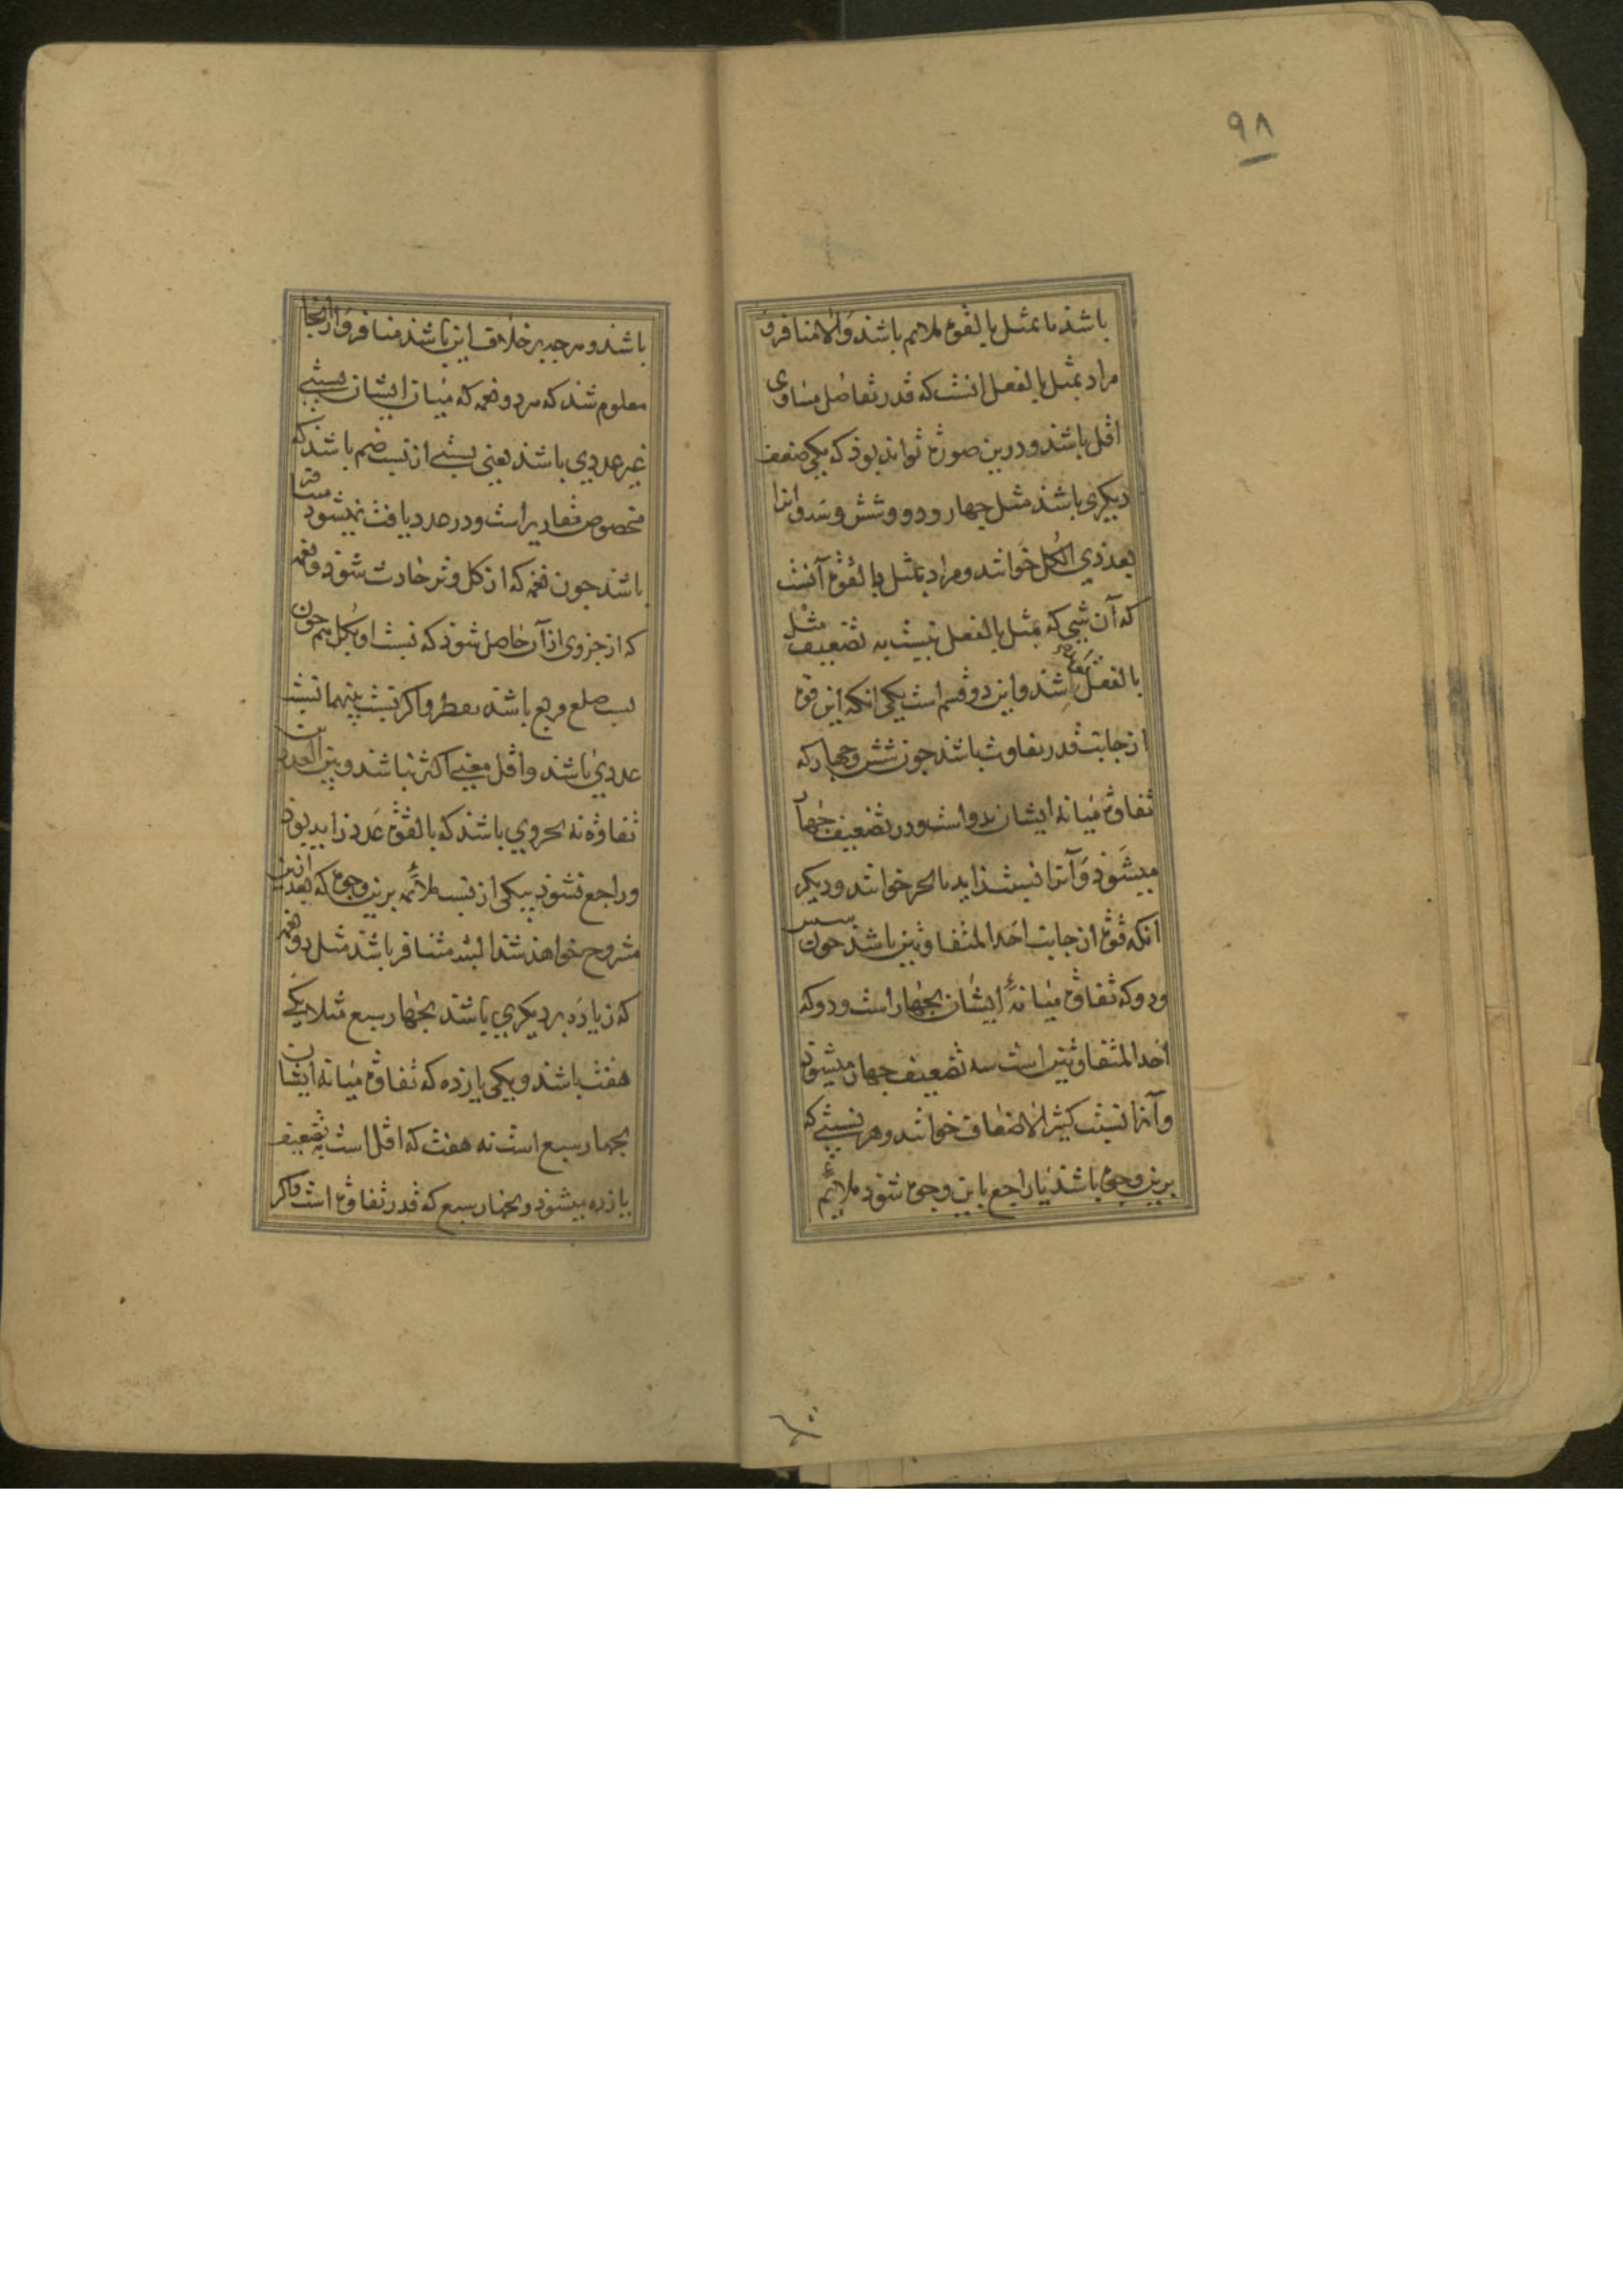 ۹۸
باشد یا بمثل بالقوة ملایم باشد والا متنافر و
مراد بمثل بالفعل انست که قدر تفاضل مساوی
اقل باشد و درین صورة تواند بود که یکی ضعف
دیگری باشد مثل چهار و دو و شش و سه و انرا
بعد ذی الکل خوانند و مراد بمثل بالقوة آنست
که آن شی که بمثل بالفعل نیست به تضعیف مثل
بالفعل شود و این دو قسم است یکی انکه این قوة
از جانب قدر تفاوت باشد چون شش و چهار که
تفاوة میانه ایشان بدو است و در تضعیف چهار
میشود و آنرا نسبت زاید بالجزء خوانند و دیگر
انکه قوة از جانب احد المتفاوتین باشد چون
ودو که تفاوة میانهٔ ایشان بچهار است و دو که
احد المتفاوتین است به تضعیف چهار میشود
و آنرا نسبت کثیر الاضعاف خوانند و هر نسبتی که
برین وجه باشد یا راجع باین وجوه شود ملایم
باشد و هرچه بر خلاف این باشد متنافر و از اینجا
معلوم شد که هر دو نغمه که میان ایشان نسبتی
غیر عددی باشد یعنی نسبتی از نسب صم باشد که
مخصوص مقادیر است و در عدد یافت نمیشود متنافر
باشد چون نغمه که از کل وتر حادث شود و نغمه
که از جزوی از آن حاصل شود که نسبت او بکل هم چون
نسب ضلع مربع باشد بقطر و اگر نسبت بینهما نسبت
عددی باشد و اقل مفنی اکثر نباشد و بین العددین
تفاوة نه بجزوی باشد که بالقوة عدد زاید بود
و راجع نشود بیکی از نسب ملائمه برین وجوه که بعد ازین
مشروح خواهد شد البته متنافر باشد مثل دو نغمه
که زیاده بر دیگری باشد بچهار سبع مثلا یکی
هفت باشد و یکی یازده که تفاوة میانه ایشان
بچهار سبع است نه هفت که اقل است به تضعیف
یازده میشود و نچهار سبع که قدر تفاوة است و اگر